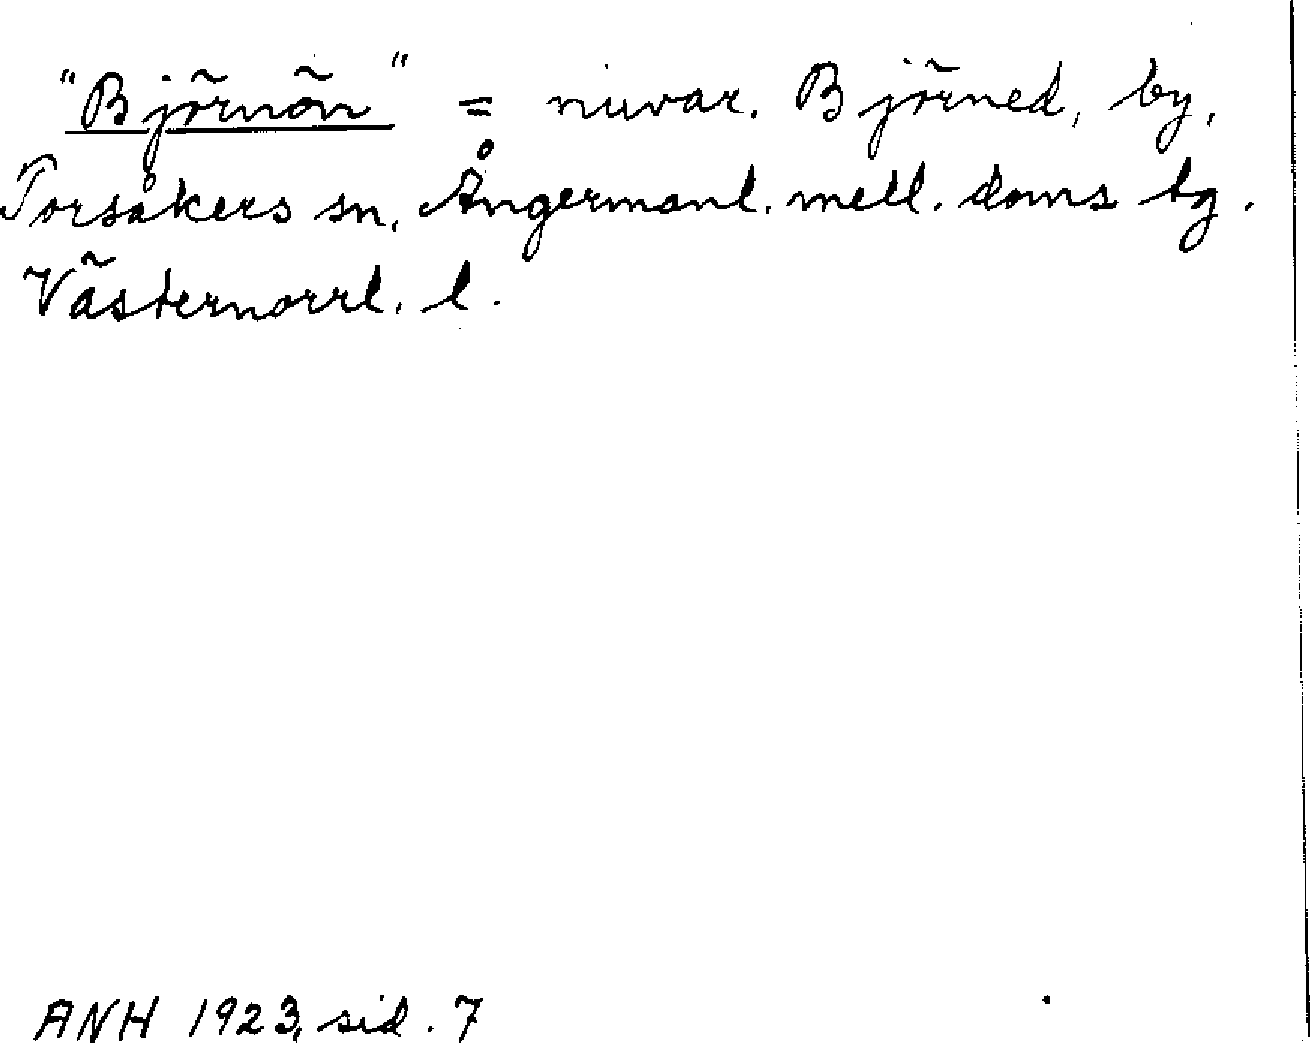 "Björnön" = nuvar. Björned, by,
Torsåkers sn, Ångermanl. mell. doms tg.
Västernorrl. l.
ANH 1923, sid. 7